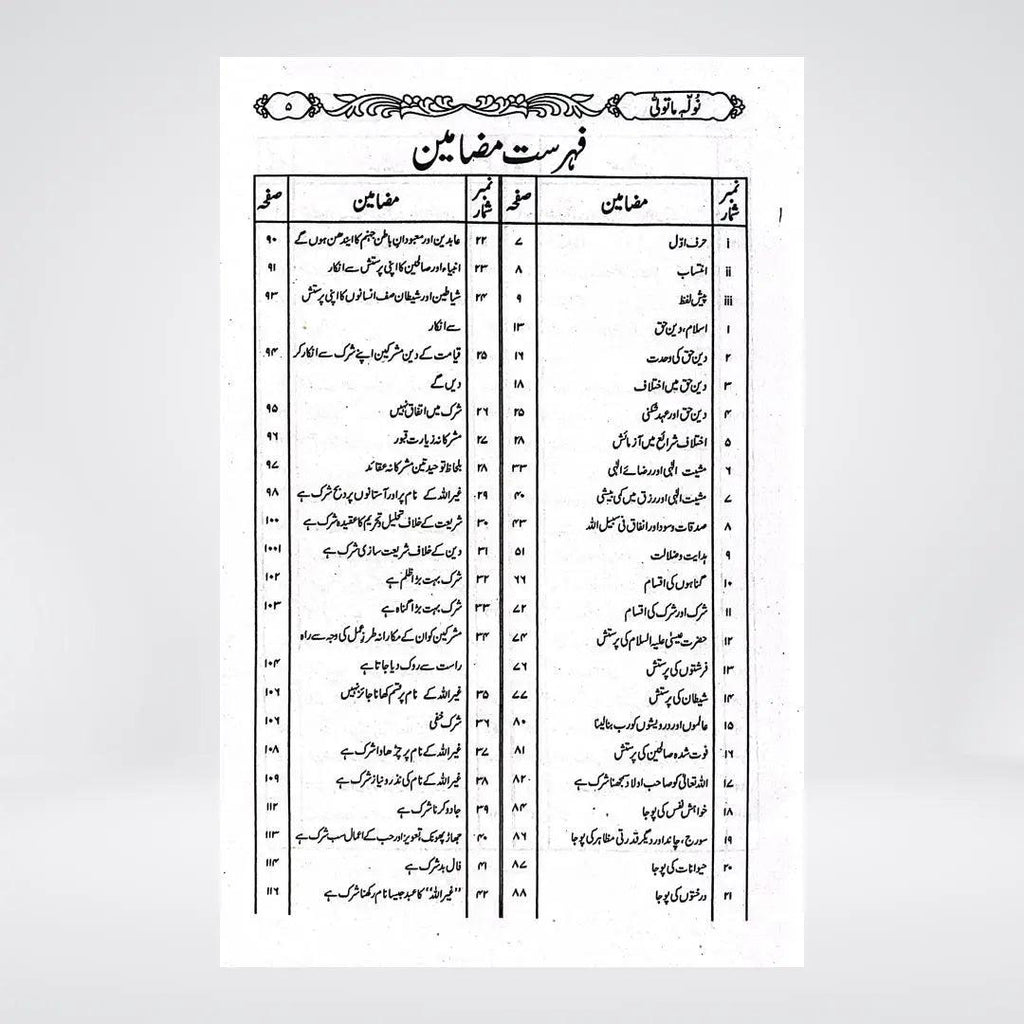 نُولّہٖ ماتولّٰی ۵
فہرست مضامین
نمبر شمار مضامین صفحہ
i حرف اوّل ۷
ii انتساب ۸
iii پیش لفظ ۹
۱ اسلام، دین حق ۱۳
۲ دین حق کی وحدت ۱۶
۳ دین حق میں اختلاف ۱۸
۴ دین حق اور عہد شکنی ۲۵
۵ اختلاف شرائع میں آزمائش ۲۸
۶ مشیت الٰہی اور رضائے الٰہی ۳۳
۷ مشیت الٰہی اور رزق میں کمی بیشی ۴۰
۸ صدقات و سود اور انفاق فی سبیل اللہ ۴۳
۹ ہدایت و ضلالت ۵۱
۱۰ گناہوں کی اقسام ۶۶
۱۱ شرک اور شرک کی اقسام ۷۲
۱۲ حضرت عیسیٰ علیہ السلام کی پرستش ۷۴
۱۳ فرشتوں کی پرستش ۷۶
۱۴ شیطان کی پرستش ۷۷
۱۵ عالموں اور درویشوں کو رب بنالینا ۸۰
۱۶ فوت شدہ صالحین کی پرستش ۸۱
۱۷ اللہ تعالیٰ کو صاحب اولاد سمجھنا شرک ہے ۸۲
۱۸ خواہش نفس کی پوجا ۸۴
۱۹ سورج، چاند اور دیگر قدرتی مظاہر کی پوجا ۸۶
۲۰ حیوانات کی پوجا ۸۷
۲۱ درختوں کی پوجا ۸۸
نمبر شمار مضامین صفحہ
۲۲ عابدین اور معبودان باطن جہنم کا ایندھن ہوں گے ۹۰
۲۳ انبیاء اور صالحین کا اپنی پرستش سے انکار ۹۱
۲۴ شیاطین اور شیطان صف انسانوں کا اپنی پرستش ۹۳
سے انکار
۲۵ قیامت کے دن مشرکین اپنے شرک سے انکار کر ۹۴
دیں گے
۲۶ شرک میں اتفاق نہیں ۹۵
۲۷ مشرکانہ زیارت قبور ۹۶
۲۸ بلحاظ توحید تین مشرکانہ عقائد ۹۷
۲۹ غیر اللہ کے نام پر اور آستانوں پر ذبح شرک ہے ۹۸
۳۰ شریعت کے خلاف تحلیل و تحریم کا عقیدہ شرک ہے ۱۰۰
۳۱ دین کے خلاف شریعت سازی شرک ہے ۱۰۰۱
۳۲ شرک بہت بڑا ظلم ہے ۱۰۲
۳۳ شرک بہت بڑا گناہ ہے ۱۰۳
۳۴ مشرکین کو ان کے مکارانہ طرز عمل کی وجہ سے راہ
راست سے روک دیا جاتا ہے ۱۰۴
۳۵ غیر اللہ کے نام پر قسم کھانا جائز نہیں ۱۰۶
۳۶ شرک خفی ۱۰۶
۳۷ غیر اللہ کے نام پر چڑھاوا شرک ہے ۱۰۸
۳۸ غیر اللہ کے نام کی نذر و نیاز شرک ہے ۱۰۹
۳۹ جادو کرنا شرک ہے ۱۱۲
۴۰ جھاڑ پھونک، تعویز اور حب کے اعمال سب شرک ہے ۱۱۳
۴۱ فال بد شرک ہے ۱۱۴
۴۲ ”غیر اللہ“ کا عبد جیسا نام رکھنا شرک ہے ۱۱۶